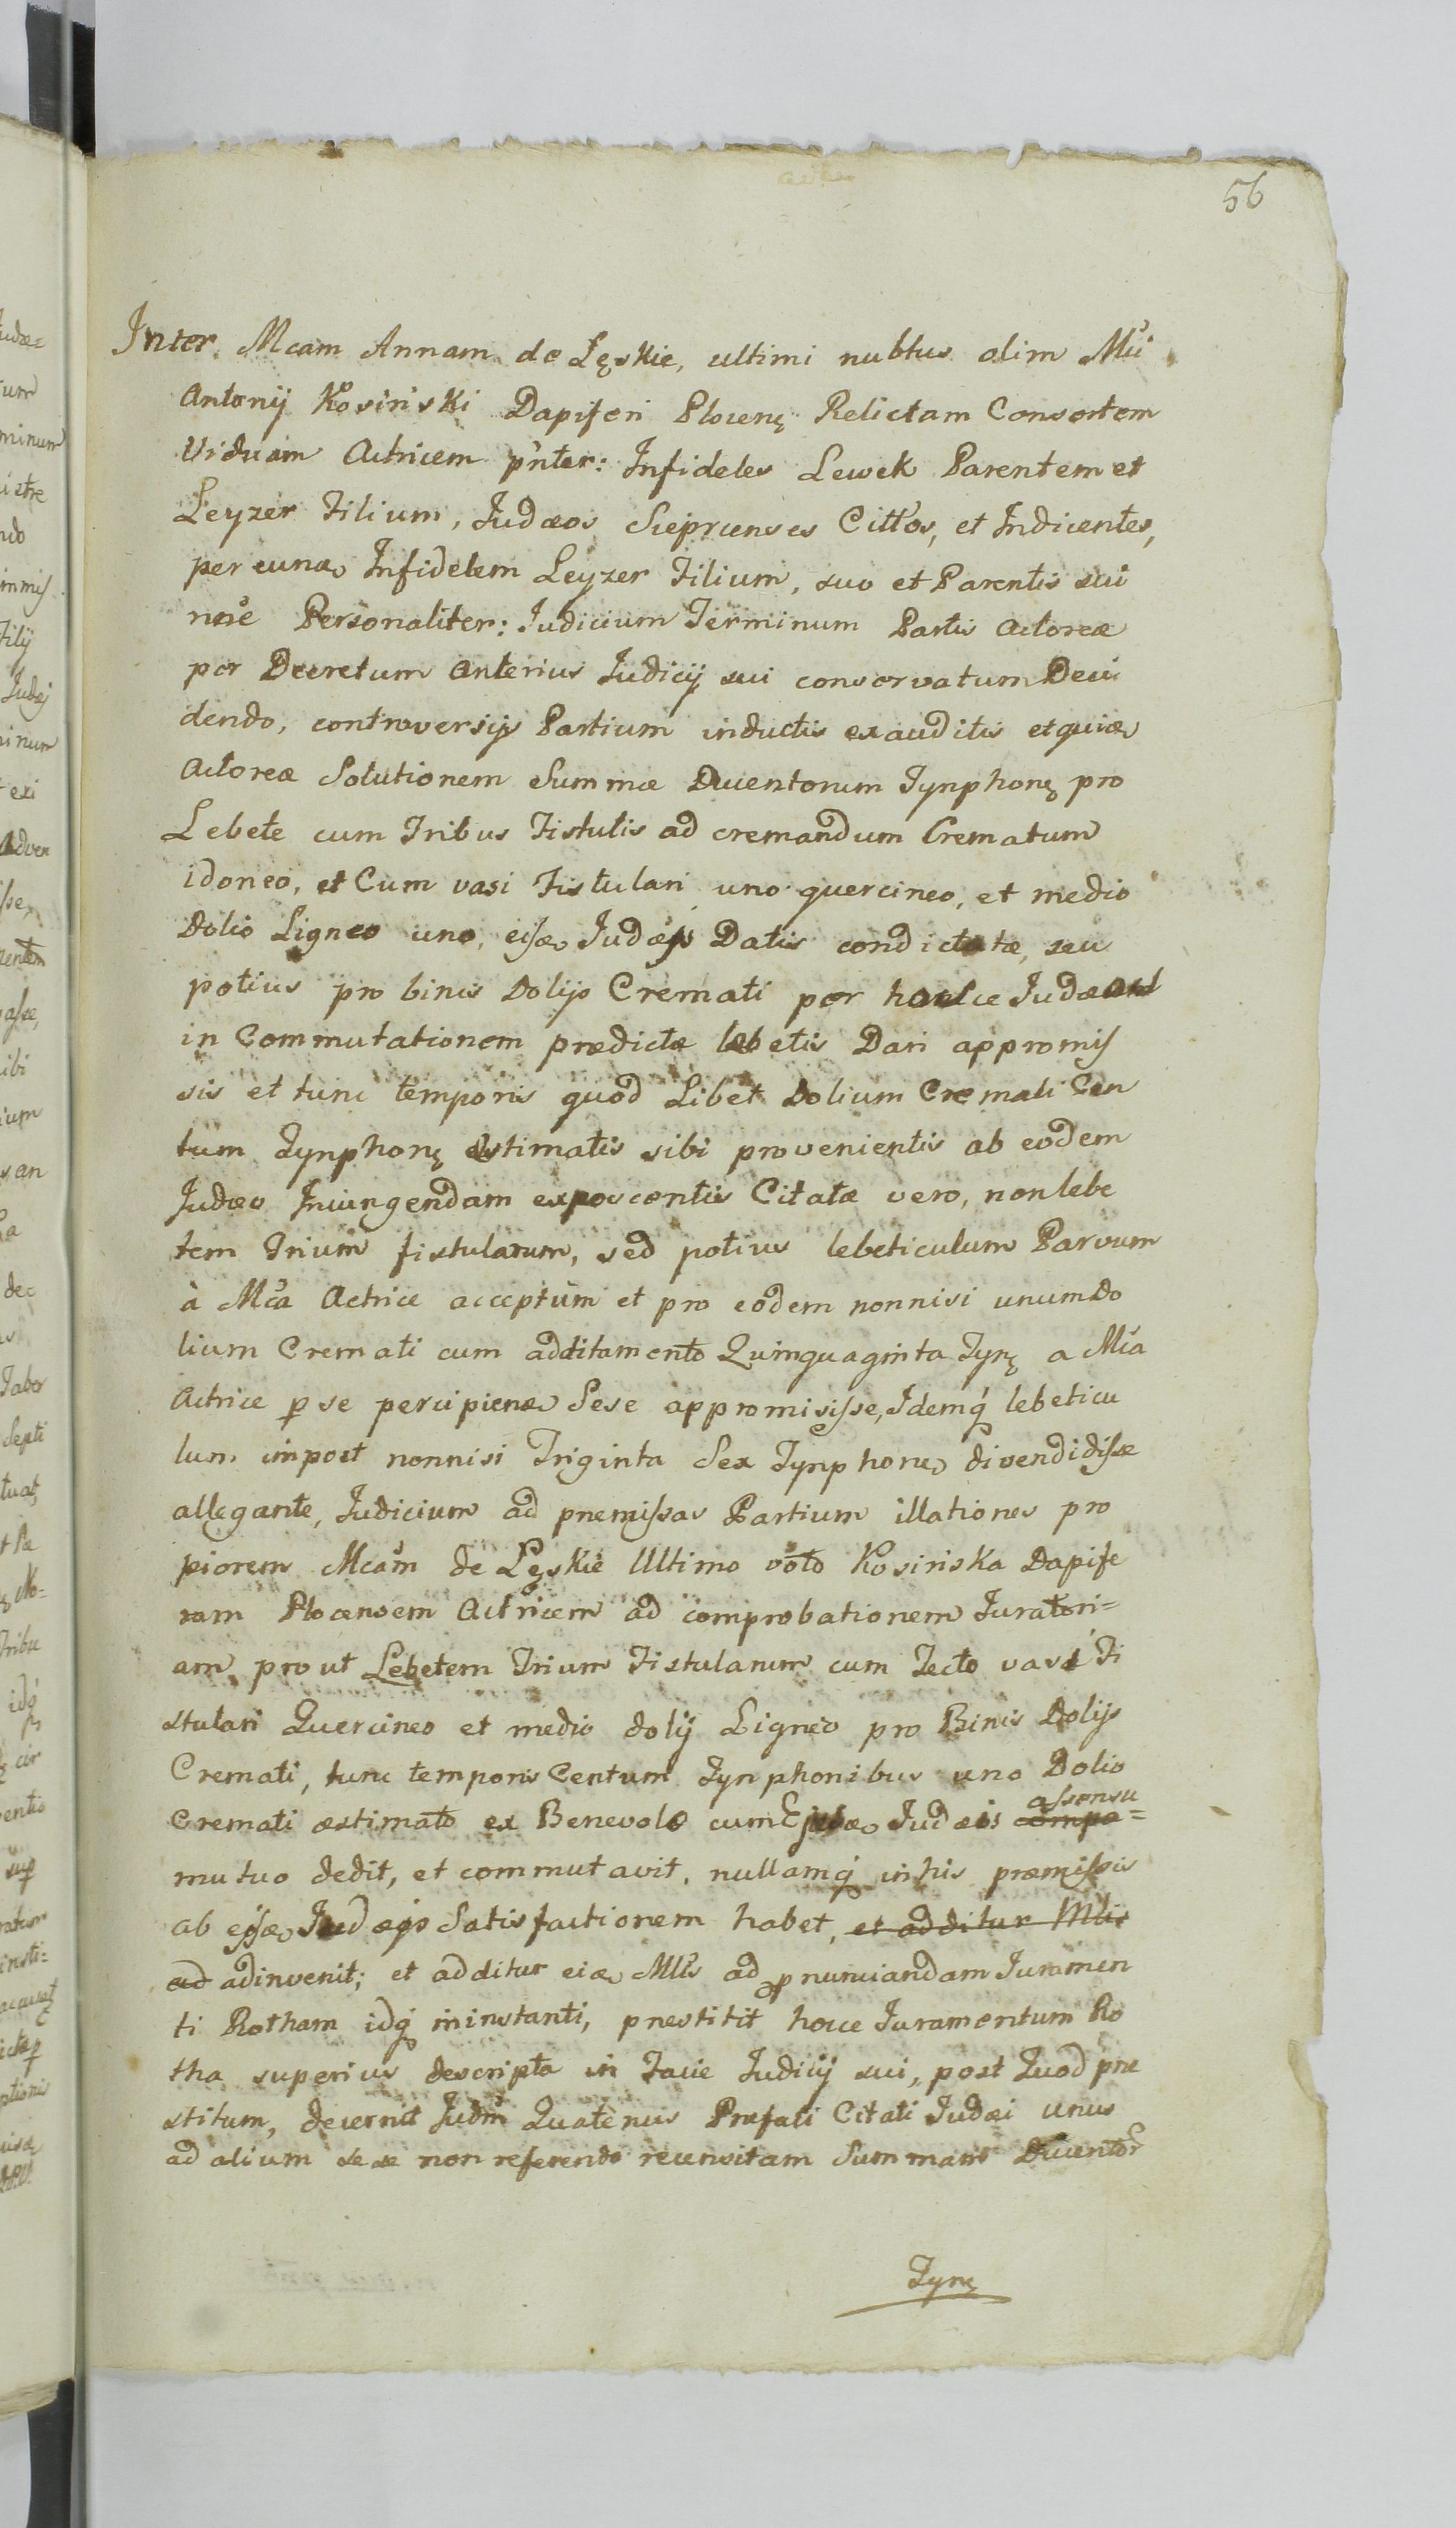 56
Inter Mcam Annam de Lęskie, ultimi nubtus olim Mci
Antonij Kosiński Dapiferi Plocenę Relictam Consortem
Viduam Actricem pnter: Infideles Lewek Parentem et
Leyzer Filium, Judæos Sieprcenses Cittos, et Indicentes,
per eund Infidelem Leyzer Filium, suo et Parentis sui
nŏie Personaliter: Judicium Terminum Partis Actoreæ
per Decretum anterius Judicij sui conservatum Deci
dendo, controversijs Partium inductis exauditis et quia
Actoreæ Solutionem Summæ Ducentorum Tynphonę pro
Lebete cum Tribus Fistulis ad cremandum Crematum
idoneo, et Cum vasi Fistulari uno quercineo, et medio
Dolio Ligneo uno, eisd Judæis Datis condictatæ, seu
potius pro binis Dolijs Cremati per hosce Judæos
in Commutationem prædictæ lebetis Dari appromis
sis et tunc temporis quod Libet Dolium Cremati Cen
tum Tynphonę Æstimatis sibi provenientis ab eodem
Judæo Iniungendam exposcentis Citatæ vero, non lebe
tem Trium fistularum, sed potius lebeticulum Parvum
à Mca Actrice acceptum et pro eodem nonnisi unum Do
lium Cremati cum additamento Quinquaginta Tynę a Mca
Actrice p se percipiend Sese appromisisse, Idemq́ lebeticu
lum impost nonnisi Triginta Sex Tynphonę divendidisse
allegante, Judicium ad præmissas Partium illationes pro
piorem Mcam de Lęskie Ultimo voto Kosińska Dapife
ram Plocensem Actricem ad comprobationem Juratori=
am, prout Lebetem Trium Fistularum cum Tecto vasi Fi
stulari Quercineo et medio dolij Ligneo pro Binis Dolijs
Cremati, tunc temporis Centum Tynphonibus uno Dolio
Cremati æstimato ex Benevole cum Ejusd Judæis compa= assensu
mutuo dedit, et commutavit, nullamq́ in his præmissis
ab eisd Judæis Satisfactionem habet, et additur Mtis
ad adinvenit; et additur eid Mtis ad pnunciandam Juramen
ti Rotham idq́ in instanti, præstitit hocce Juramentum Ro
tha superius descripta in Facie Judicij sui, post Quod præ
stitum, decernit Judm Quatenus Præfati Citati Judæi unus
ad alium sese non referendo recensitam Summam Ducentor
Tynę